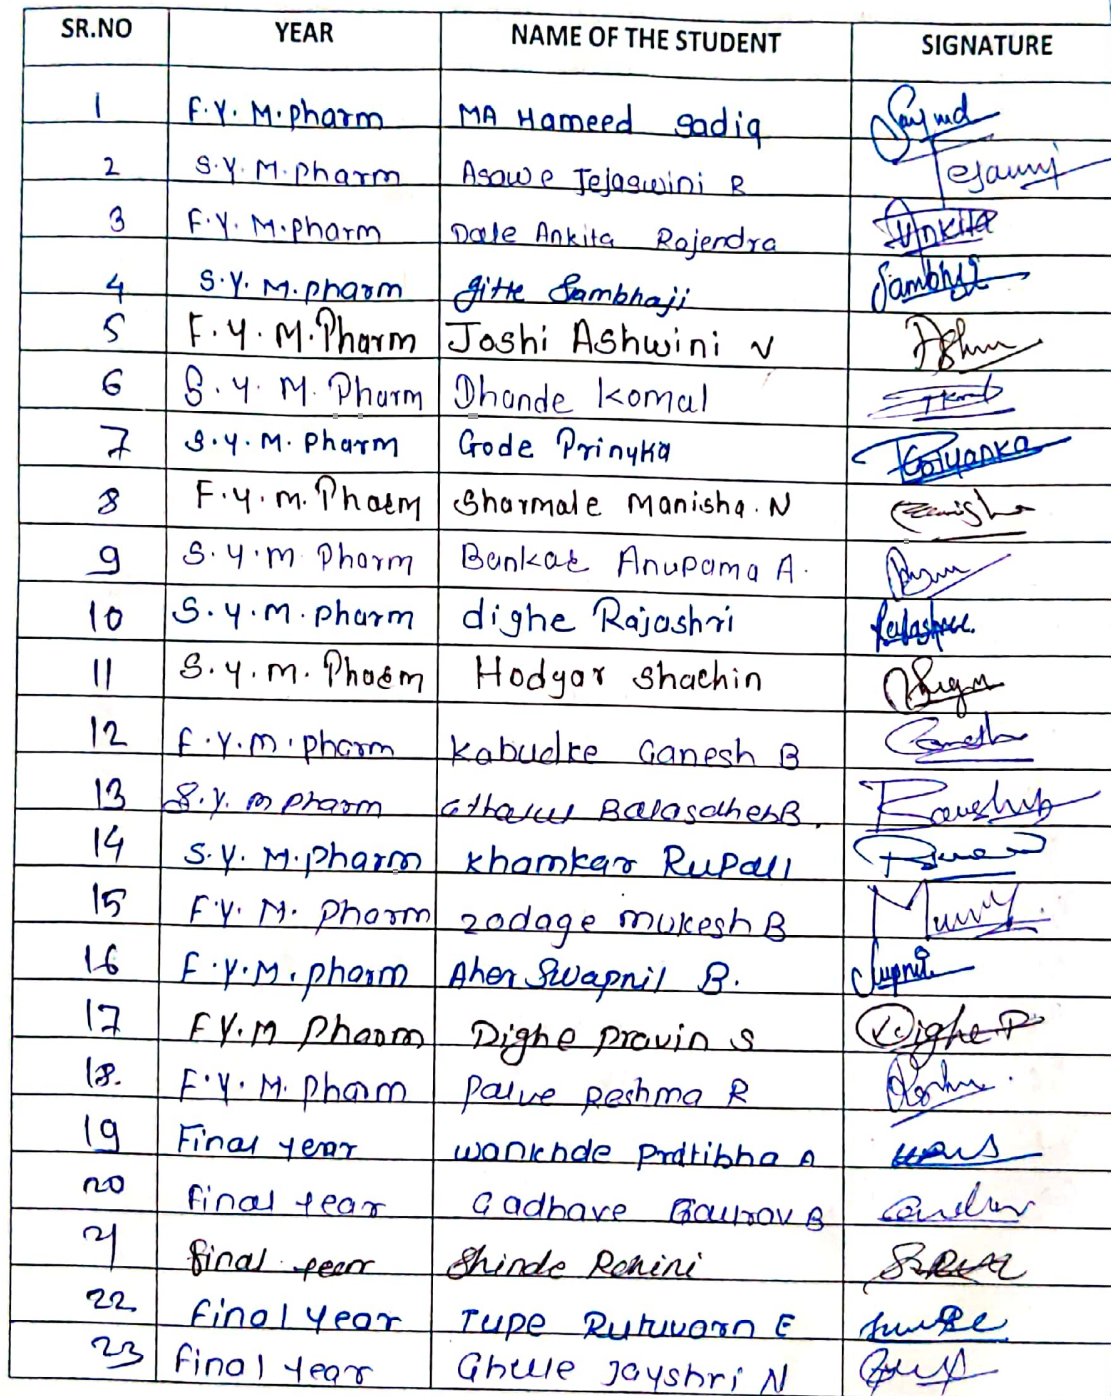 SR.NO YEAR NAME OF THE STUDENT SIGNATURE
1 F.Y. M.pharm MA Hameed Sadiq
2 S.Y. M.pharm Asawe Tejaswini R Tejaswi
3 F.Y. M.pharm Dale Ankita Rajendra Ankita
4 S.Y. M.pharm Gitte Sambhaji Sambhaji
5 F.Y. M.Pharm Joshi Ashwini V
6 S.Y. M. Pharm Dhande Komal
7 S.Y. M. Pharm Gode Prinyka Priyanka
8 F.Y. m. Pharm Sharmale Manisha. N
9 S.Y.M Pharm Bankar Anupama A.
10 S.Y.M. pharm dighe Rajashri
11 S.Y.m. Pharm Hodgar Shachin
12 F.Y.m. pharm Kabudke Ganesh B
13 S.Y. m pharm
14 S.Y. M.pharm Khamkar Rupali
15 F.Y. M. pharm zadage mukesh B
16 F.Y.M. pharm Aher Swapnil B.
17 F Y.M Pharm Dighe pravin S Dighe P
18. F.Y. M. pharm palve Reshma R
19 Final year wankhde Pratibha A
20 final year Gadhave Gaurav B
21 final year Shinde Rohini
22 final year Tupe E
23 final year Ghule Jayshri N